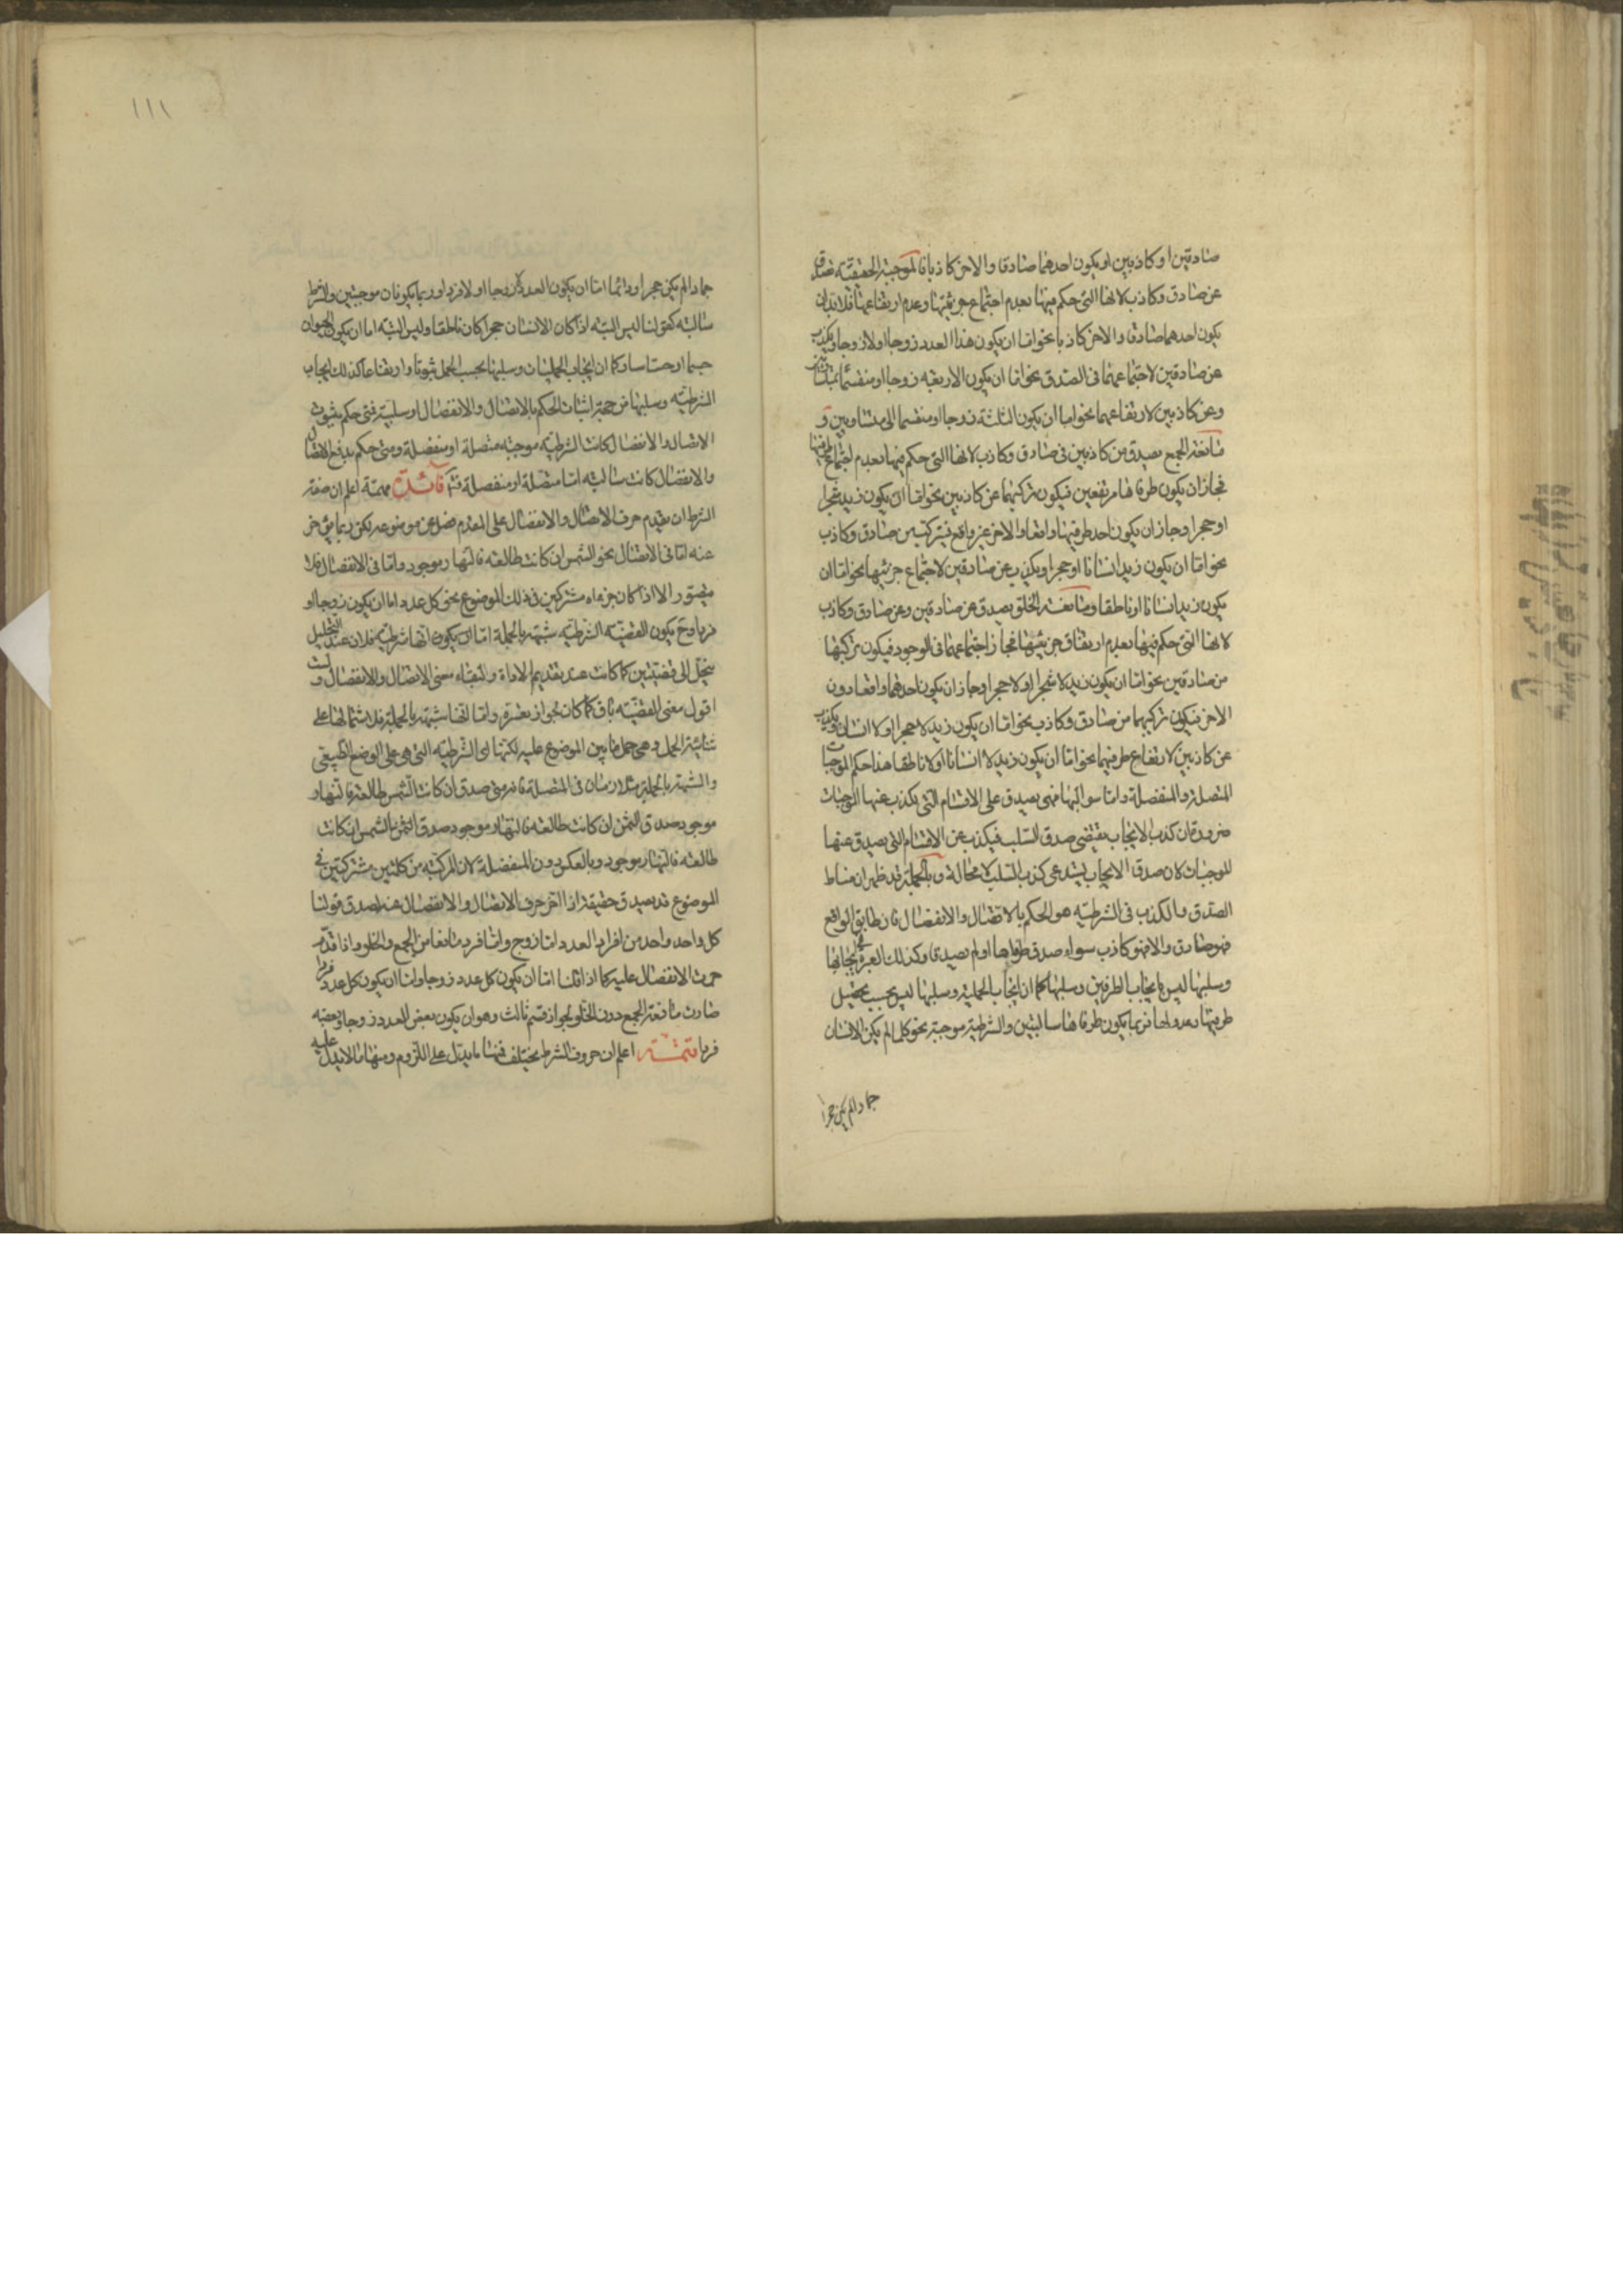 صادقين او كاذبين او يكون احدهما صادقا والاخر كاذبا فالموجبة الحقيقية تصدق
عن صادق وكاذب لانها التي حكم فيها بعدم اجتماع جزئيها وعدم ارتفاعهما فلابد ان
يكون احدهما صادقا والاخر كاذبا نحو اما ان يكون هذا العدد زوجا اولا زوجا ويكذب
عن صادقين لاجتماعهما في الصدق نحو اما ان يكون الاربعة زوجا او منقسما بمتساويين
وعن كاذبين لارتفاعهما نحو اما ان يكون الثلثة زوجا او منقسما الى متساويين و
مانعة الجمع يصدق من كاذبين في صادق وكاذب لانها التي حكم فيها بعدم اجتماع طرفيها
فجاز ان يكون طرفاها مرتفعين فيكون تركيبها عن كاذبين نحو اما ان يكون زيد شجرا
او حجرا وجاز ان يكون احد طرفيها واقعا والاخر غير واقع فيتركب من صادق وكاذب
نحو اما ان يكون زيد انسانا او حجرا ويكذب عن صادقين لاجتماع جزئيها نحو اما ان
يكون زيد انسانا او ناطقا ومانعة الخلو يصدق عن صادقين وعن صادق وكاذب
لانها التي حكم فيها بعدم ارتفاع جزئيها فجاز اجتماعهما في الوجود فيكون تركيبها
من صادقين نحو اما ان يكون زيد لا شجرا او لا حجرا وجاز ان يكون احدهما واقعا دون
الاخر فيكون تركيبها من صادق وكاذب نحو اما ان يكون زيد لا حجرا او لا انسانا ويكذب
عن كاذبين لارتفاع طرفيها نحو اما ان يكون زيد لا انسانا او لا ناطقا هذا حكم الموجبات
المتصلة والمنفصلة واما سوالبها فهي يصدق على الاقسام التي يكذب عنها الموجبات
ضرورة ان كذب الايجاب يقتضي صدق السلب فيكذب عن الاقسام التي يصدق عنها
الموجبات لان صدق الايجاب يستدعي كذب السلب لا محالة وبالجملة قد ظهر ان مناط
الصدق والكذب في الشرطية هو الحكم بالاتصال والانفصال فان طابق الواقع
فهو صادق والا فهو كاذب سواء صدق طرفاها او لم يصدق وكذلك العبرة في ايجابها
وسلبها ليس بايجاب الطرفين وسلبها كما ان ايجاب الحملية وسلبها ليس بحسب تحصيل
طرفيها وعدولها فربما يكون طرفاها سالبتين والشرطية موجبة نحو كلما لم يكن الانسان
جمادا لم يكن حجرا
١١١
جمادا لم يكن حجرا ودائما اما ان يكون العدد لا زوجا او لا فردا وربما يكونان موجبتين والشرطية
سالبة كقولنا ليس البتة اذا كان الانسان حجرا كان ناطقا وليس البتة اما ان يكون الحيوان
جسما او حساسا وكما ان ايجاب الحمليات وسلبها بحسب الحمل ثبوتا وارتفاعا كذلك ايجاب
الشرطية وسلبها من جهة اثبات الحكم بالاتصال والانفصال او سلبية فمتى حكم بثبوت
الاتصال والانفصال كانت الشرطية موجبة متصلة او منفصلة ومتى حكم برفع الاتصال
والانفصال كانت سالبة اما متصلة او منفصلة فائدة مهمة اعلم ان صفة
الشرط ان يقدم حرف الاتصال والانفصال على المقدم فضلا عن موضوعه لكن ربما يؤخر
عنه اما في الاتصال نحو الشمس ان كانت طالعة فالنهار موجود واما في الانفصال فلا
يتصور الا اذا كان جزءاه مشتركين في ذلك الموضوع نحو كل عدد اما ان يكون زوجا او
فردا وح يكون القضية الشرطية شبيهة بالحملية اما ان يكون انها شرطية فلان عند التحليل
ينحل الى قضيتين كما كانت عند تقديم الاداة ولبقاء معنى الاتصال والانفصال و
اقول معنى القضية باق كما كان واما انها شبيهة بالحملية فلاشتمالها على
شائبة الحمل وهي حمل ما بين الموضوع عليه لكنها الى الشرطية التي هي على الوضع الطبيعي
والشبيهة بالحملية متلازمتان في المتصلة فانه متى صدق ان كانت الشمس طالعة فالنهار
موجود صدق الشمس ان كانت طالعة فالنهار موجود صدق الشمس ان كانت
طالعة فالنهار موجود وبالعكس دون المنفصلة لان المركبة من كليتين مشتركتين في
الموضوع قد يصدق حقيقة اذا اخر حرف الاتصال والانفصال عند صدق قولنا
كل واحد واحد من افراد العدد اما زوج واما فرد مانعا من الجمع والخلو واذا قدم
حرف الانفصال عليه كما اذا قلنا اما ان يكون كل عدد زوجا واما ان يكون كل عدد فردا
صارت مانعة الجمع دون الخلو لجواز قسم ثالث وهو ان يكون بعض العدد زوجا وبعضه
فردا تتمة اعلم ان حروف الشرط يختلف فمنها ما يدل على اللزوم ومنها ما لا يدل عليه